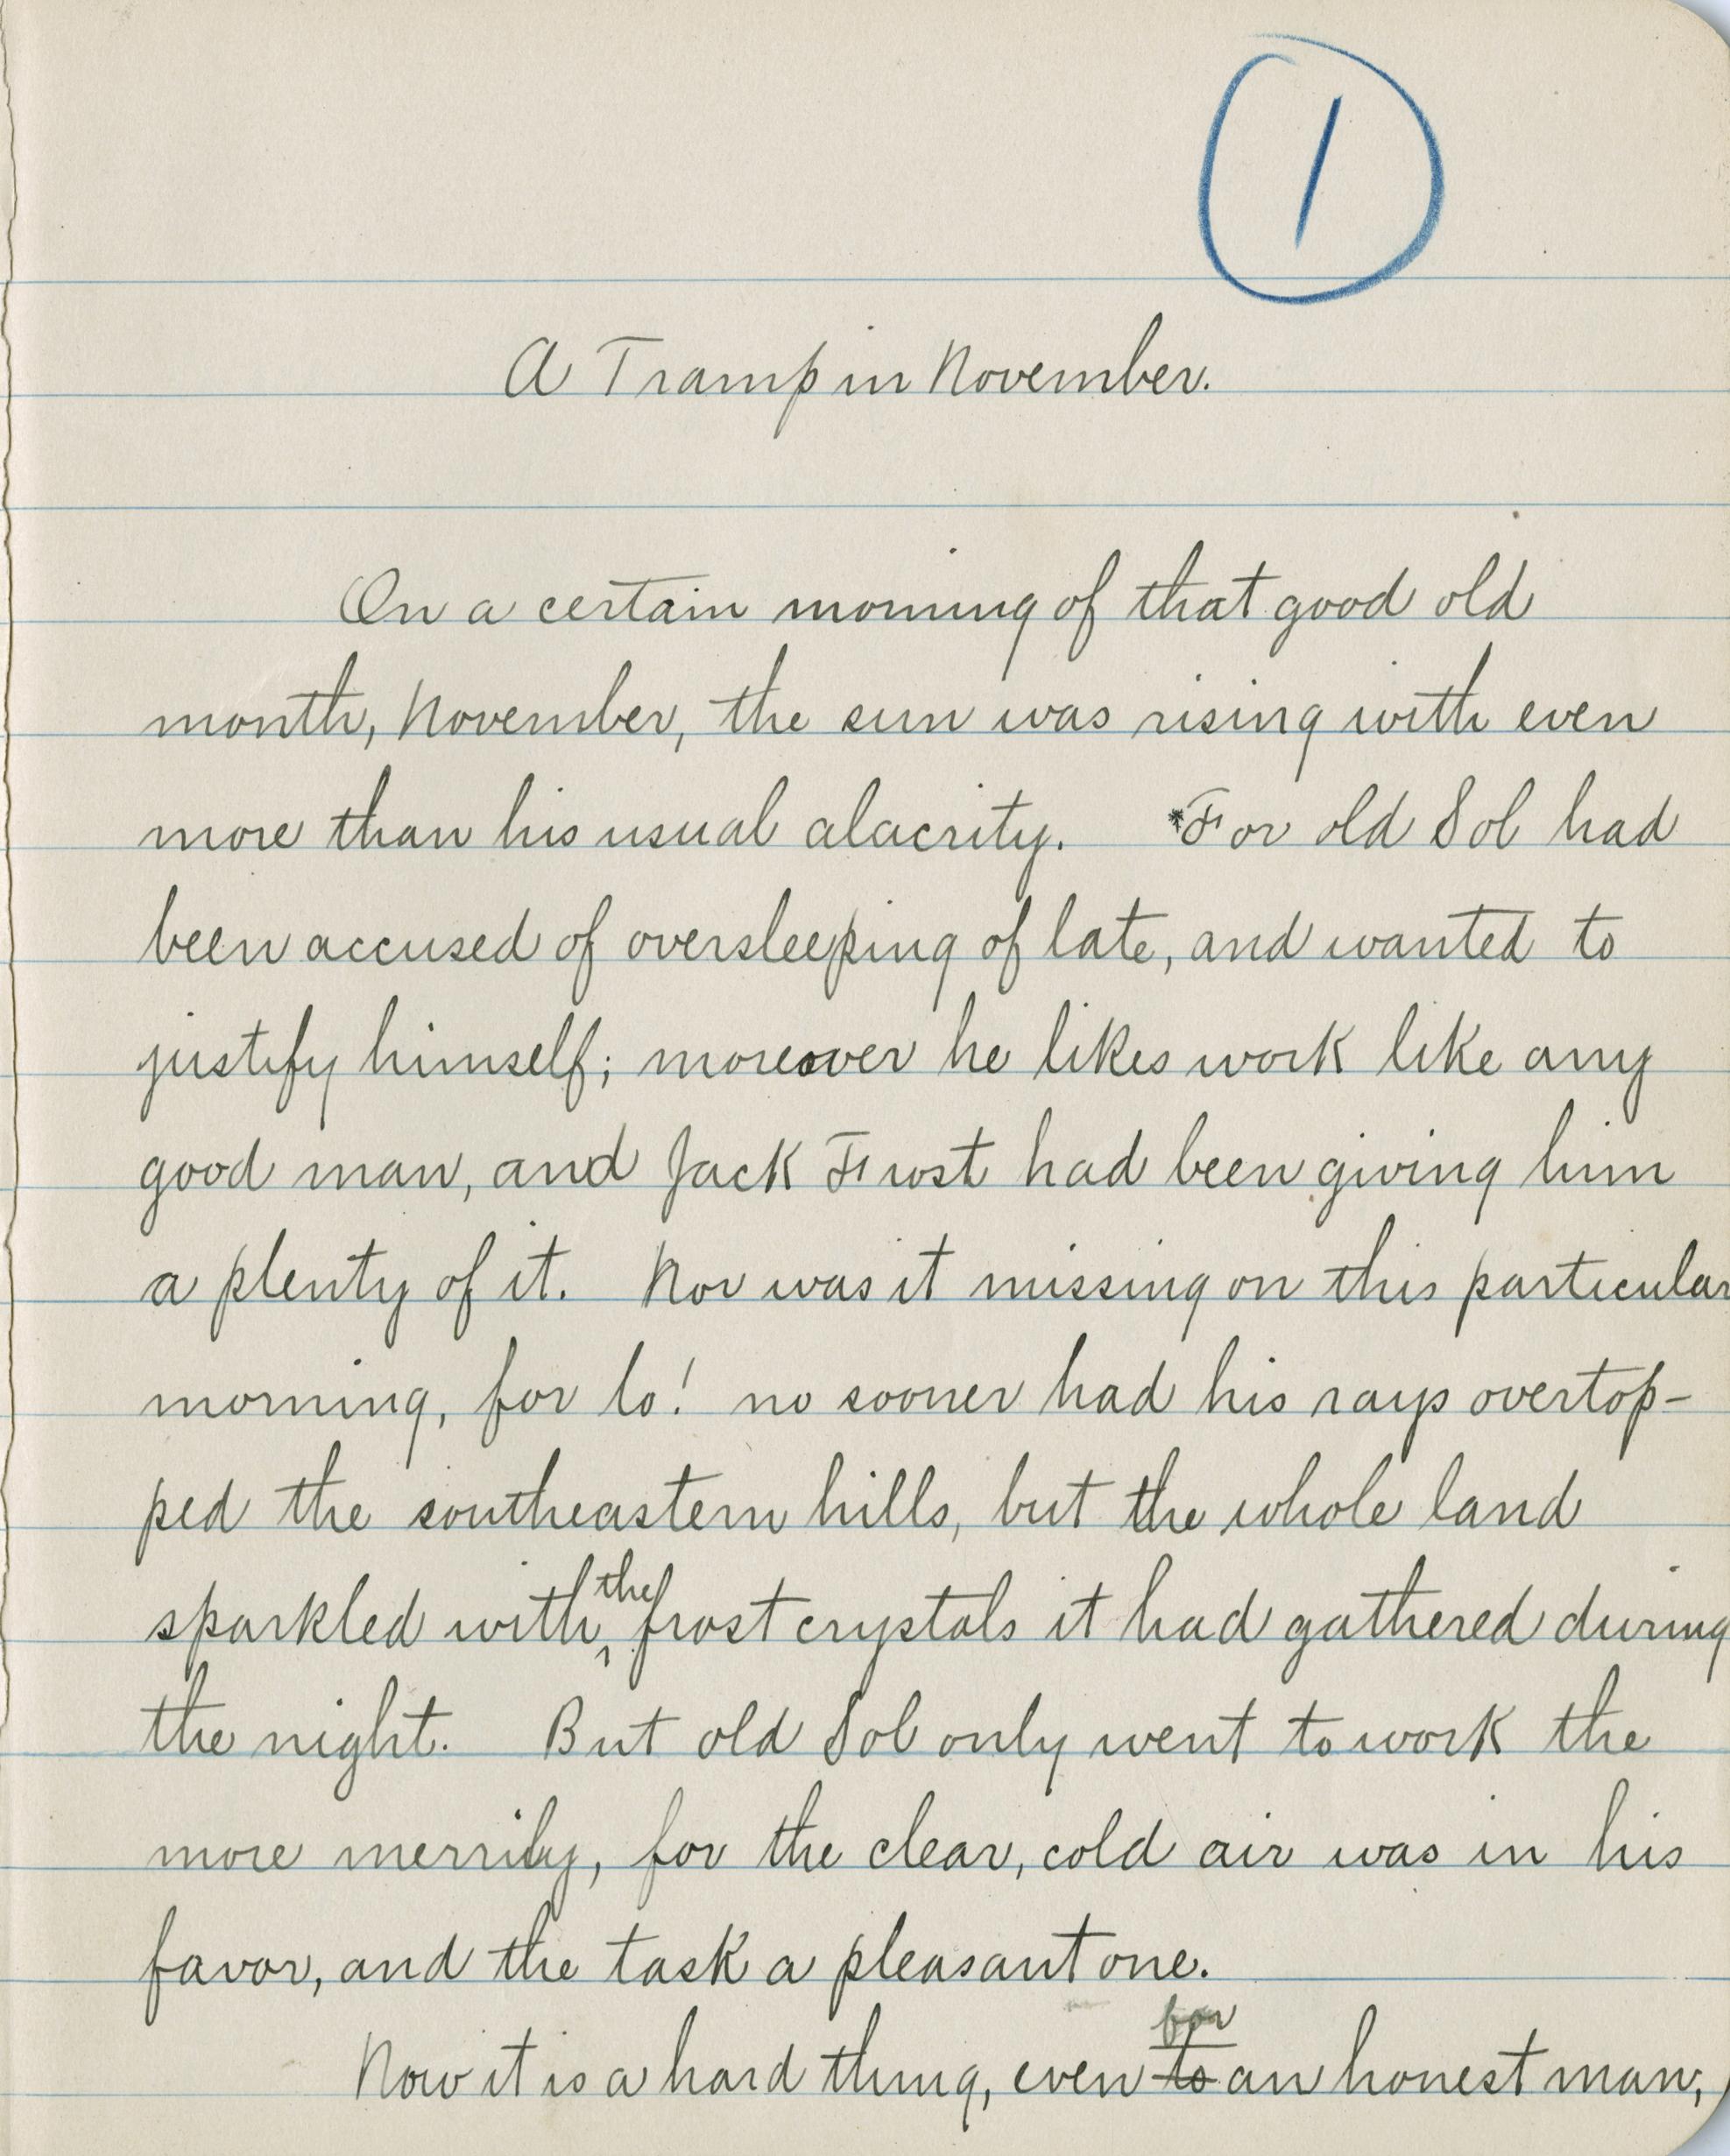 1
A Tramp in November.
On a certain morning of that good old
month, November, the sun was rising with even
more than his usual alacrity. *For old Sol had
been accused of oversleeping of late, and wanted to
justify himself; moreover he likes work like any
good man, and Jack Frost had been giving him
a plenty of it. Nor was it missing on this particular
morning, for lo! no sooner had his rays overtop-
ped the southeastern hills, but the whole land
sparkled with the frost crystals it had gathered during
the night. But old Sol only went to work the
more merrily, for the clear, cold air was in his
favor, and the task a pleasant one.
Now it is a hard thing, even to for an honest man,